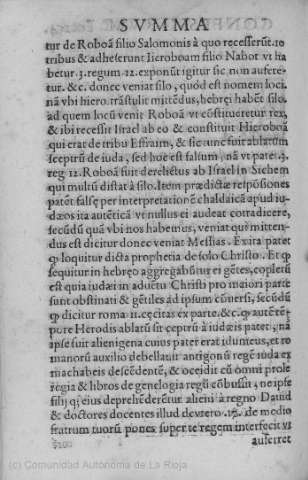 SVMMA
tur de Roboã filio Salomonis à quo recesserũt .10
tribus & adheserunt Ieroboam filio Nabot vt ha
betur .3. regum .12. exponũt igitur sic non aufere-
tur. &c. donec veniat silo, quod est nomem loci.
nã vbi hiero. trãstulit mittẽdus, hebręi habẽt silo.
ad quem locũ venit Roboã vt cõstitueretur rex,
& ibi recessit Israel ab eo & constituit Hieroboã
qui erat de tribu Effraim, & sic tunc fuit ablatum
sceptrũ de iuda, sed hoc est falsum, nã vt patet .3.
reg 12. Roboã fuit derelictus ab Israel in Sichem
qui multũ distat à silo. Item prædictæ respõsiones
patent falsę per interpretationẽ chaldaicã apud iu-
dæos ita autẽticã vt nullus ei audeat cõtradicere,
secũdũ quã vbi nos habemus, veniat qui mitten-
dus est dicitur donec veniat Messias. Ex ita patet
ꝙ loquitur dicta prophetia de solo Christo. Et ꝙ
sequitur in hebręo aggregabũtur ei gẽtes, cõplerũ
est quia iudæi in aduẽtu Christi pro maiori parte
sunt obstinati & gẽtiles ad ipsum cõuersi, secũdũ
ꝙ dicitur roma .11. cęcitas ex parte. &c. ꝙ autẽ tẽ-
pore Herodis ablatũ sit ceptrũ à iudæis patet, nã
ipse fuit alienigena cuius pater erat idumeus, et ro
manorũ auxilio debellauit antigonũ regẽ iuda ex
machabeis descẽdentẽ, & occidit cũ omni prole
regia & libros de genelogia regũ cõbussit, ne ipse
filij ꝙ; eius deprehẽderẽtur alieni à regno Dauid
& doctores docentes illud deutero. .17. de medio
fratrum tuorũ pones super te regem interfecit vt
auferret
(c) Comunidad Autónoma de La Rioja